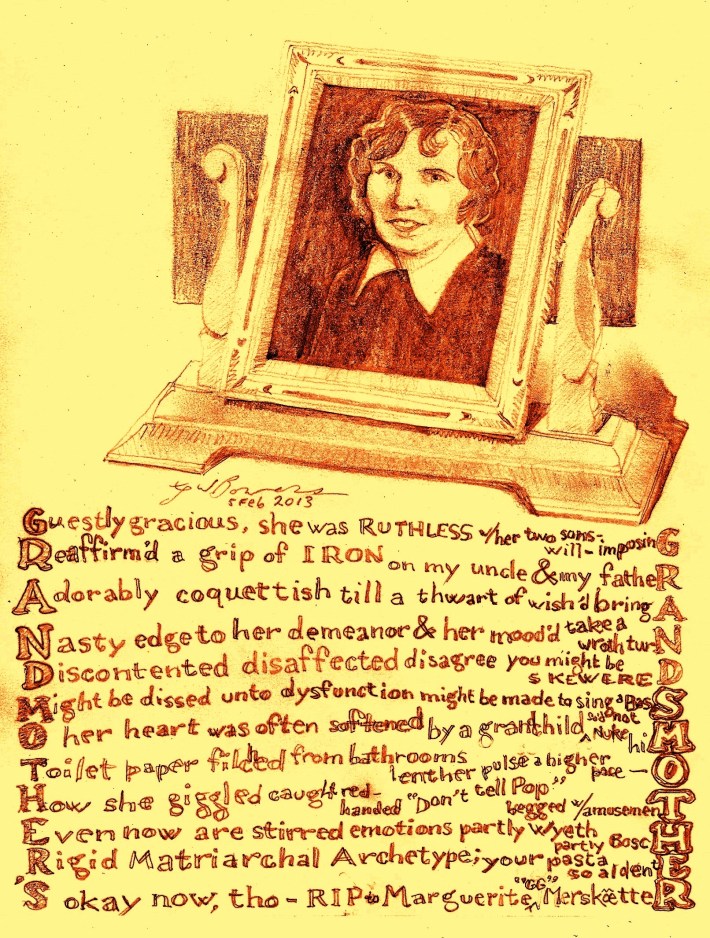 GW Bowers
5 Feb 2013
Guestly gracious, she was RUTHLESS w/her two sons- will-imposinG
Reaffirm'd a grip of IRON on my uncle & my fatheR
Adorably coquettish till a thwart of wish'd bring A
Nasty edge to her demeanor & her mood'd take a wrath turN
Discontented disaffected disagree you might be SKEWERED
Might be dissed unto dysfunction might be made to sing a BasS
O her heart was often softened by a granchild not Nuke hiM
Toilet paper filched from bathrooms lent her pulse a higher pace - O
How she giggled caught red-handed "Don't tell Pop" begged w/amusemenT
Even now are stirred emotions partly Wyeth partly BoscH
Rigid Matriarchal Archetype; your pasta so al dentE
'S okay now, tho - RIP to Marguerite "GG" MerskætteR